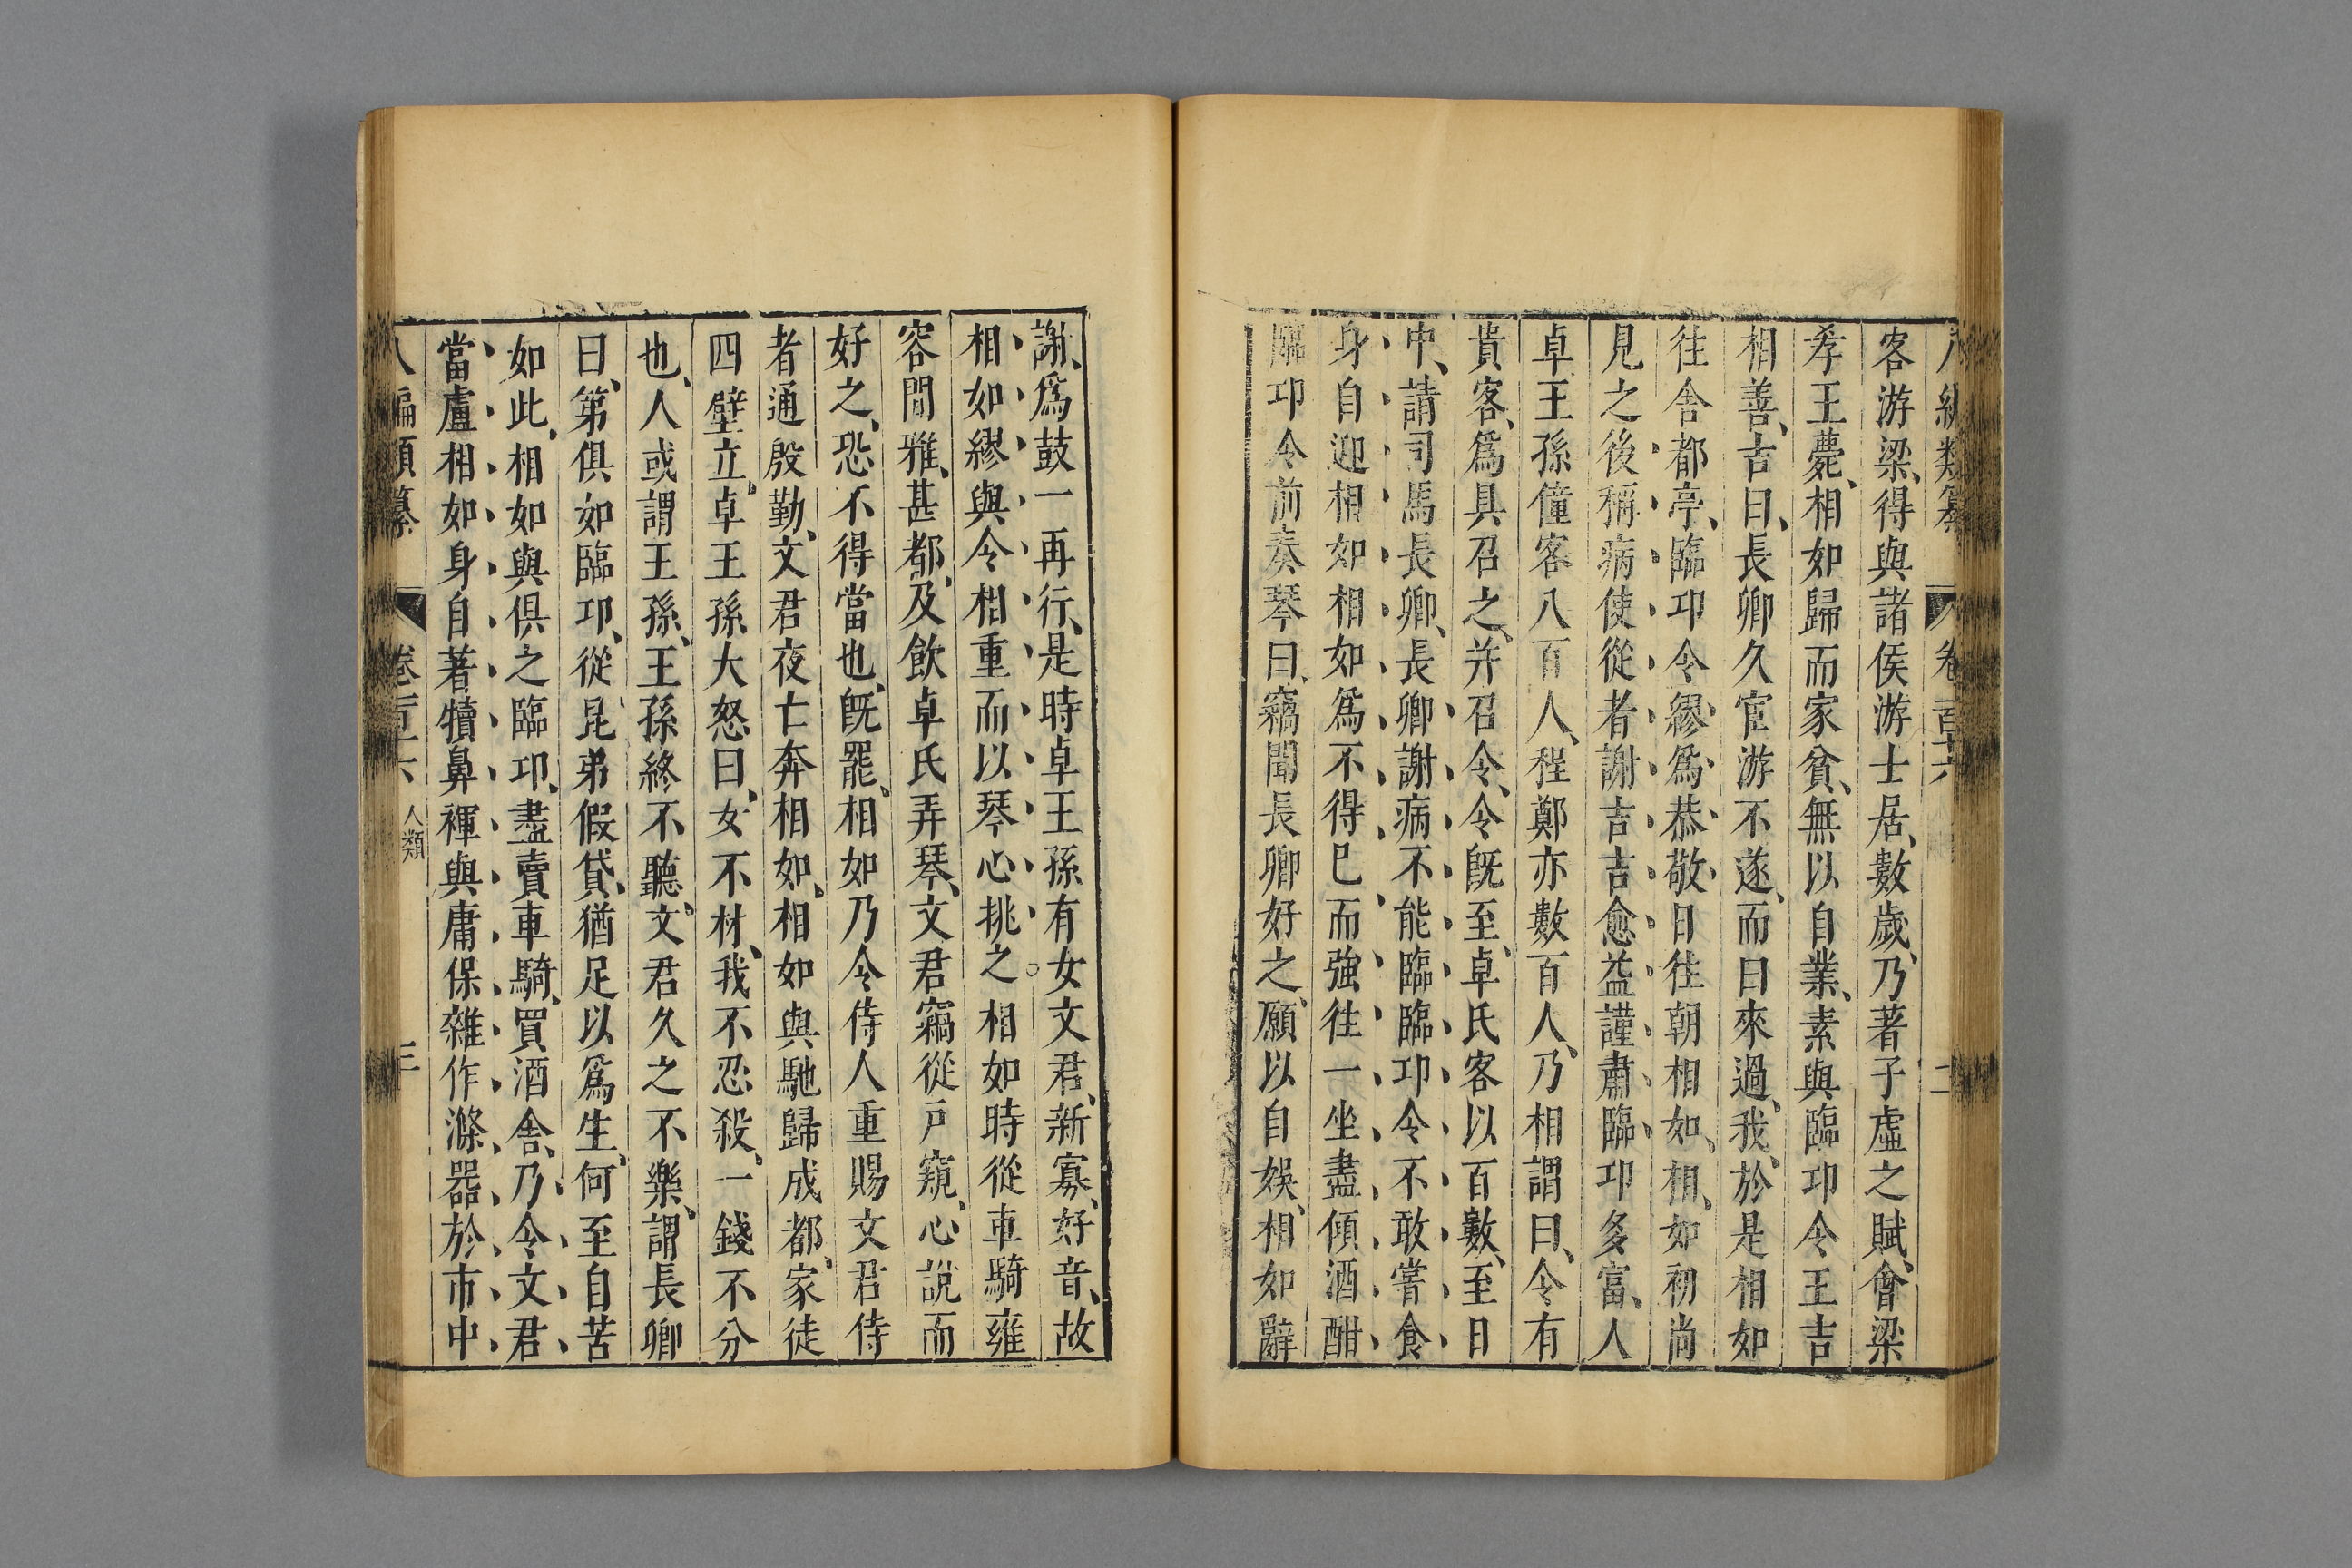 八編類纂 卷一百十六 二
客游梁、得與諸侯游士居、數歲、乃著子虛之賦、會梁
孝王薨、相如歸而家貧、無以自業、素與臨邛令王吉
相善、吉曰、長卿久宦游不遂、而曰來過、我、於是相如
往舍都亭、臨邛令繆爲恭敬日往朝相如、相、如初尚
見之後稱病使從者謝吉吉愈益謹肅臨邛多富、人
卓王孫僮客八百人、程鄭亦數百人、乃相謂曰、令有
貴客、爲具召之、并召令、令既至、卓氏客以百數、至日
中、請司馬長卿、長卿謝病不能臨臨邛令不敢嘗食
身自迎相如相如爲不得已而強往一坐盡傾酒酣
臨邛令前奏琴曰、竊聞長卿好之、願以自娛、相如辭
謝、爲鼓一再行、是時卓王孫有女文君、新寡、好音、故
相如繆與令相重而以琴心挑之。相如時從車騎雍
容閒雅、甚都、及飲卓氏弄琴、文君竊從戸窺、心說而
好之、恐不得當也、既罷、相如乃令侍人重賜文君侍
者通殷勤、文君夜亡奔相如、相如與馳歸成都、家徒
四壁立、卓王孫大怒曰、女不材、我不忍殺、一錢不分
也、人或謂王孫、王孫終不聽、文君久之不樂、謂長卿
曰、第俱如臨邛、從昆弟假貸、猶足以爲生、何至自苦
如此、相如與俱之臨邛、盡賣車騎、買酒舍、乃令文君
當盧相如身自著犢鼻褌與庸保雜作滌器於市中
八編類纂 卷一百十六 人類 三